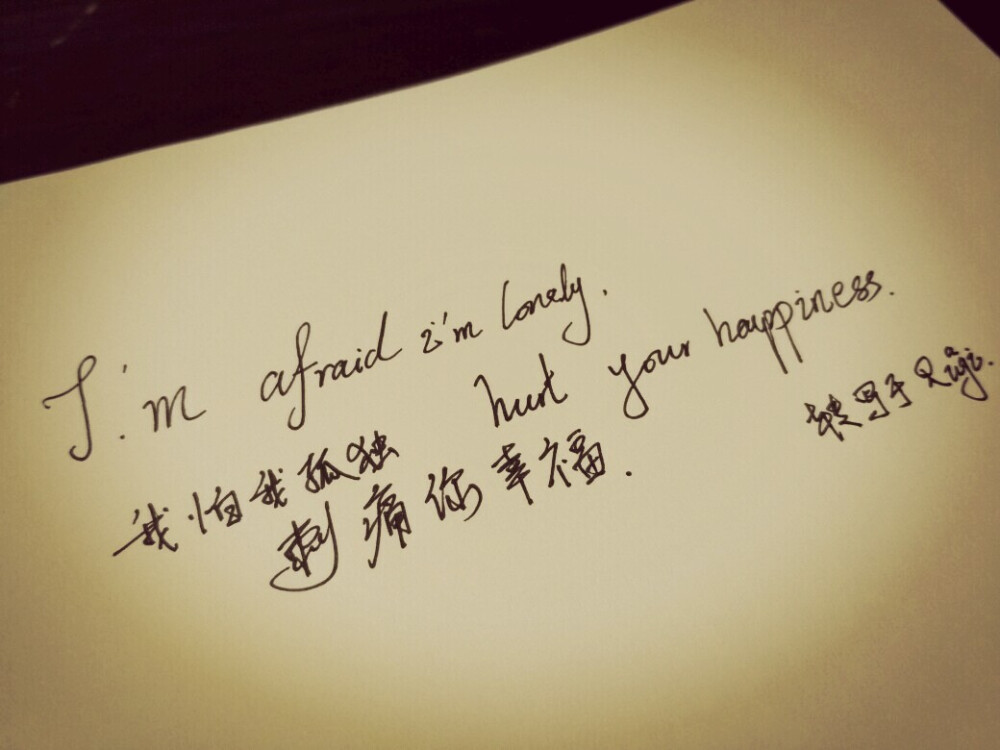 I'm afraid i'm lonely.
hurt your happiness.
我怕我孤独
刺痛你幸福.
转写于Qiqi.